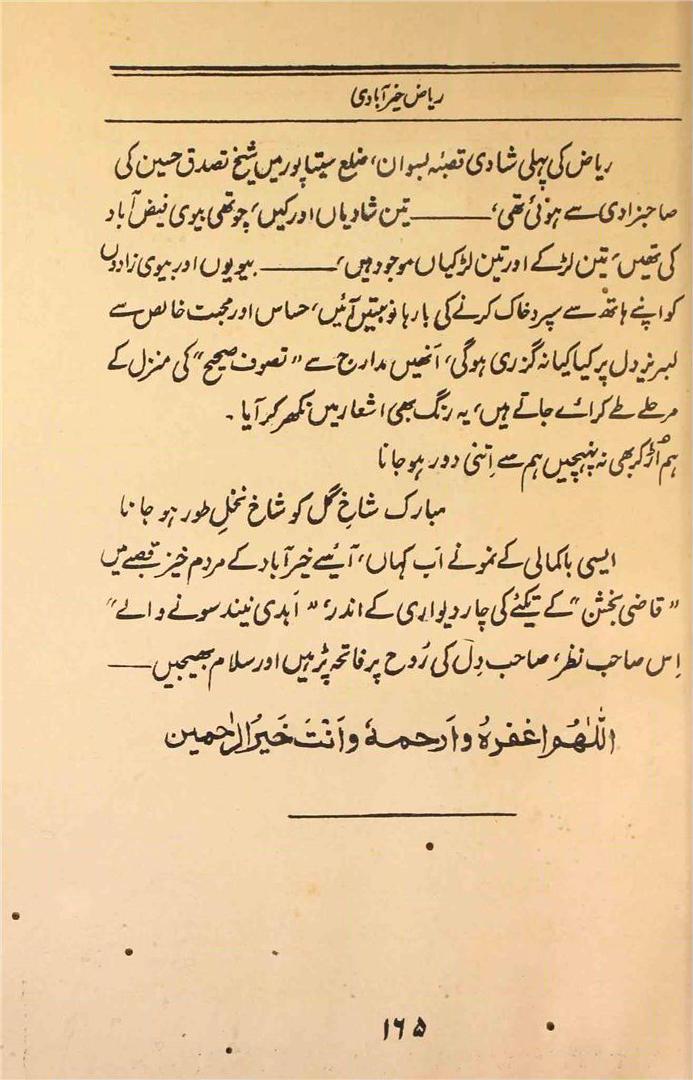 ریاض خیرآبادی
ریاض کی پہلی شادی قصبۂ بسوان، ضلع سیتاپور میں شیخ تصدق حسین کی
صاحبزادی سے ہوئی تھی، ——— تین شادیاں اور کیں، چوتھی بیوی فیض آباد
کی تھیں، تین لڑکے اور تین لڑکیاں موجود ہیں، ——— بیویوں اور بیوی زادوں
کو اپنے ہاتھ سے سپرد خاک کرنے کی بارہا نوبتیں آئیں، حساس اور محبت خالص سے
لبریز دل پر کیا کیا نہ گزری ہوگی، اَنھیں مدارج سے "تصوف صحیح" کی منزل کے
مرحلے طے کرائے جاتے ہیں، یہ رنگ بھی اشعار میں نکھر کر آیا ۔
ہم اُڑ کر بھی نہ پہنچیں ہم سے اِتنی دور ہو جانا
مبارک شاخِ گل کو شاخ نخلِ طور ہو جانا
ایسی باکمالی کے نمونے اَب کہاں، آئیے خیرآباد کے مردم خیز قصبے میں
"قاضی بخشن" کے تکئے کی چار دیواری کے اندر، "اَبدی نیند سونے والے"
اِس صاحب نظر، صاحب دِل کی رُوح پر فاتحہ پڑہیں اور سلام بھیجیں ——
اللّٰهُم اغفرهُ وارحمهٗ وَاَنْتَ خَیرُ الرّٰحمین
۱۶۵